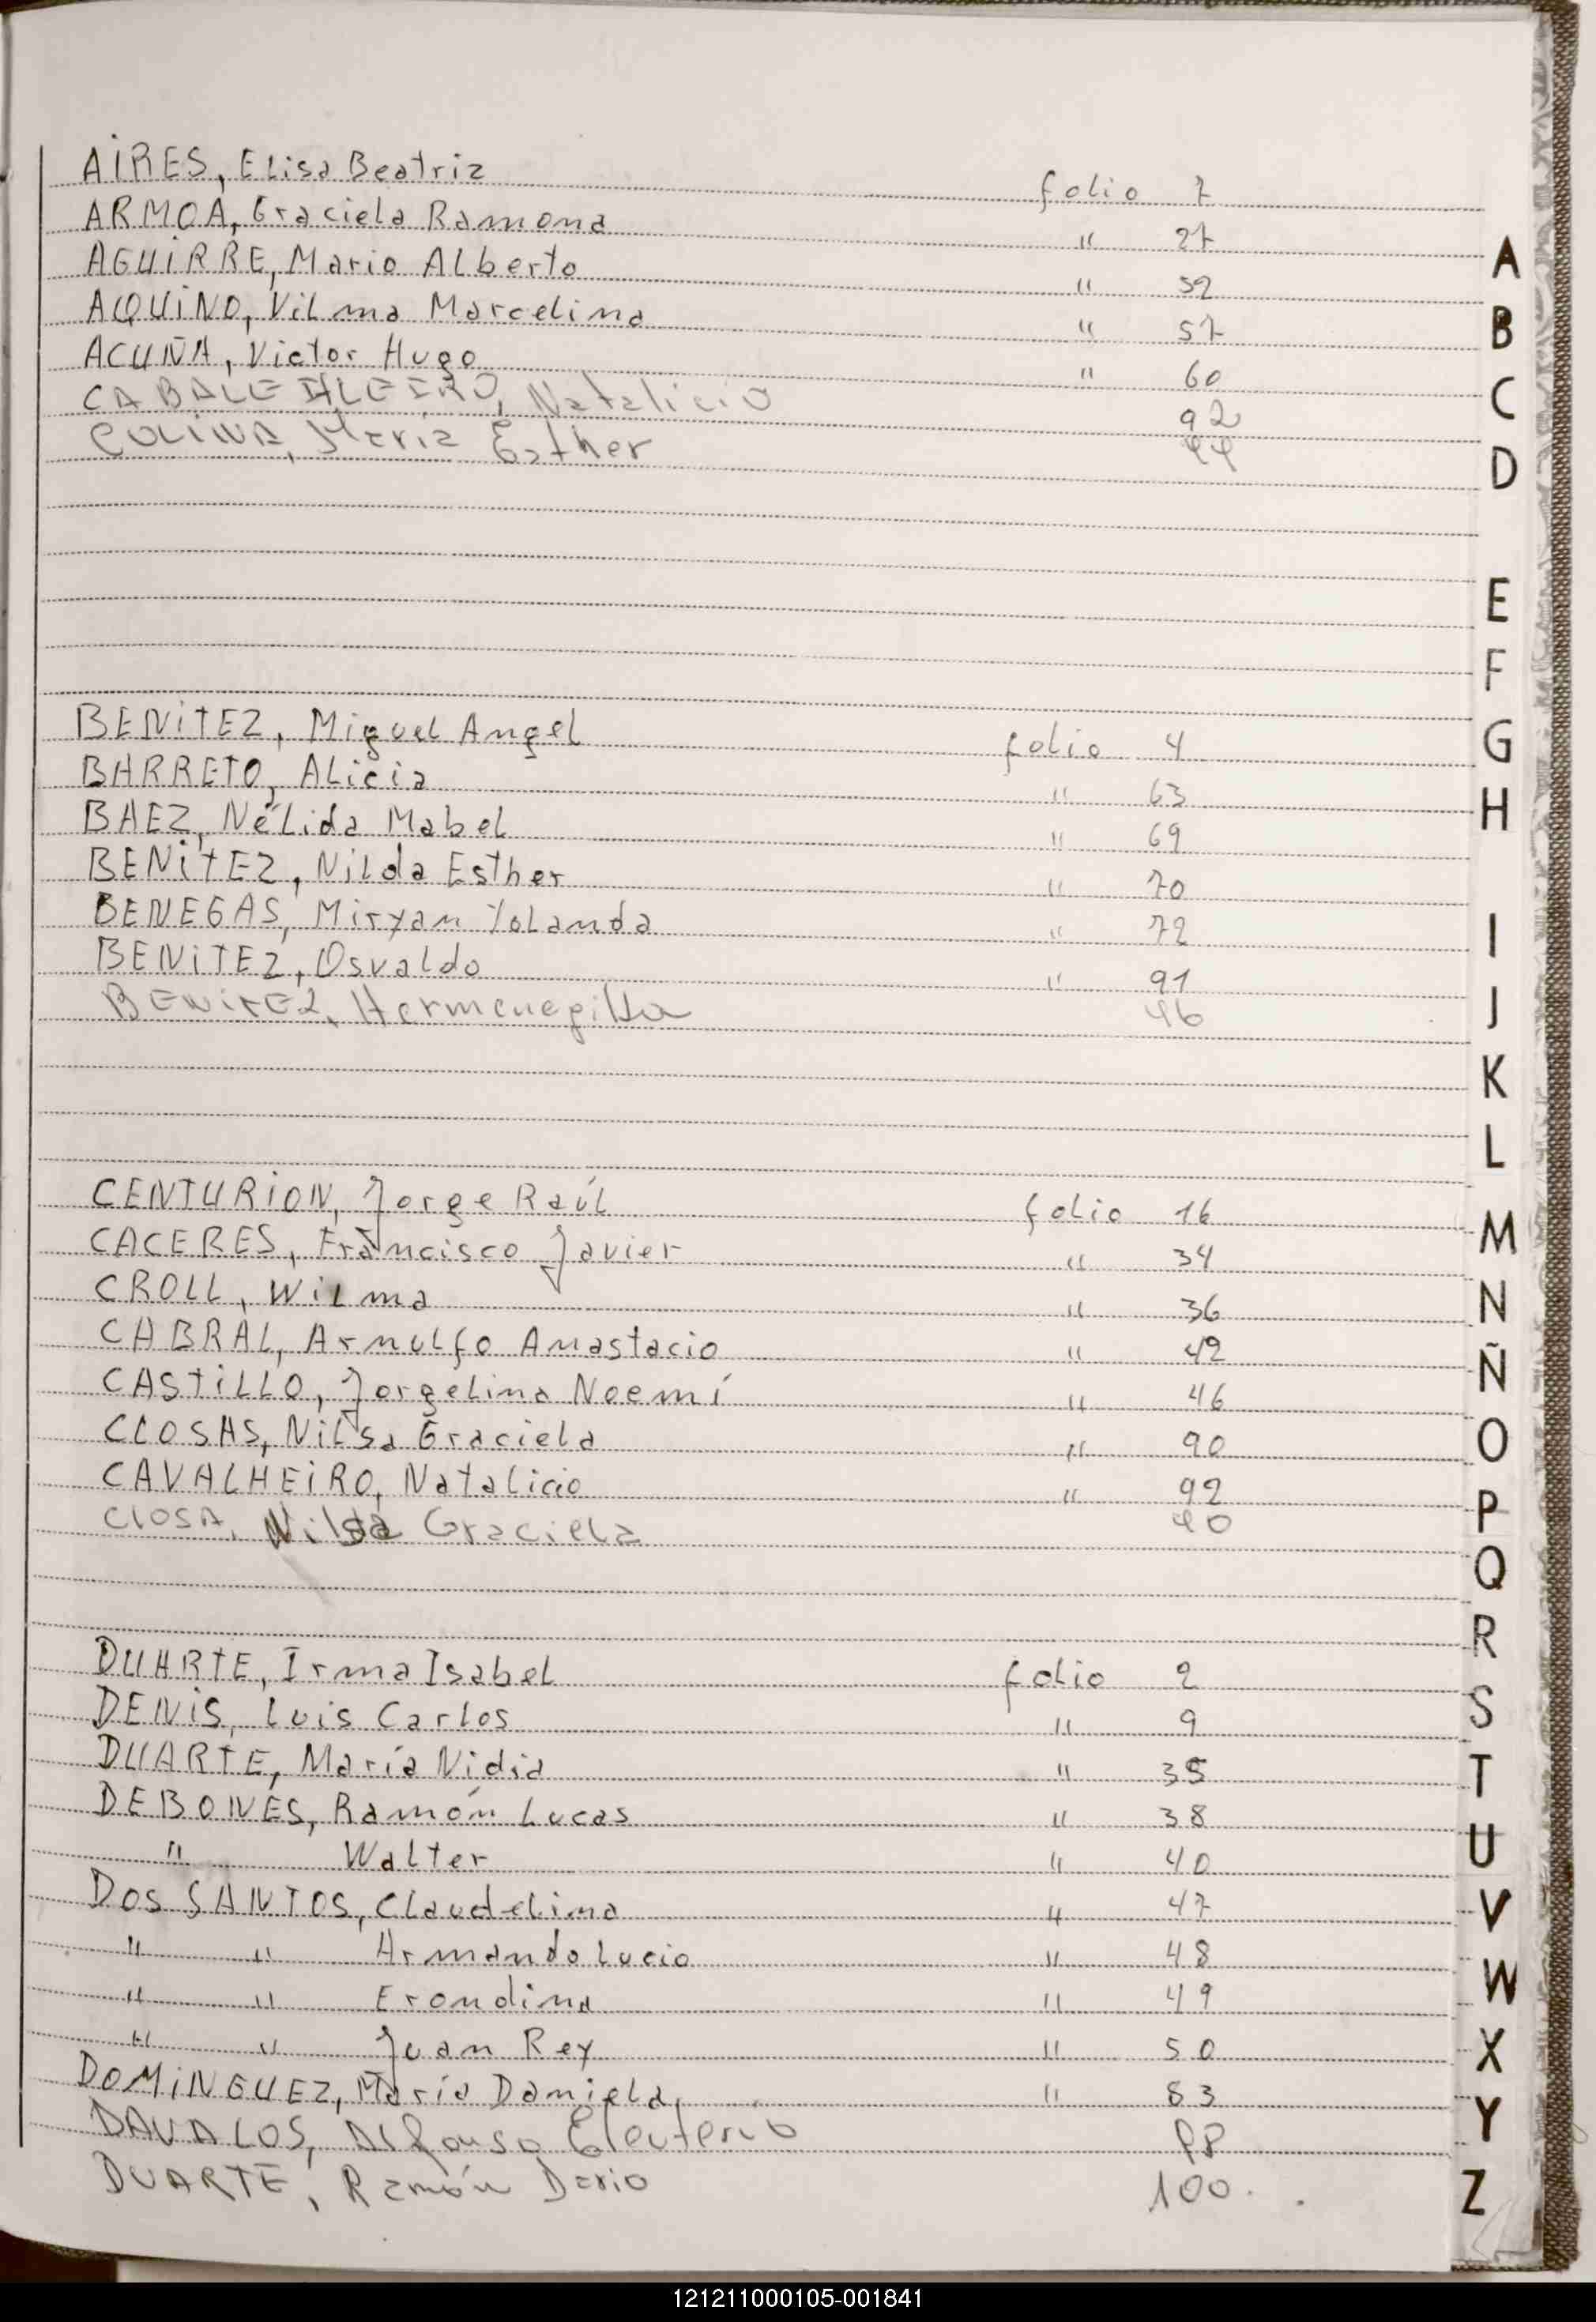 AIRES, Elisa Beatriz folio 7
ARMOA, Graciela Ramona " 27
AGUIRRE, Mario Alberto " 52
AQUINO, Vilma Marcelina " 57
ACUÑA, Victor Hugo " 60
Natalicio 92
COLINA, María Esther 94
BENITEZ, Miguel Angel folio 4
BARRETO, Alicia " 63
BAEZ, Nélida Mabel " 69
BENITEZ, Nilda Esther " 70
BENEGAS, Miryan Yolanda " 72
BENITEZ, Osvaldo " 91
BENITEZ, Hermenegilda 96
CENTURION, Jorge Raúl folio 16
CACERES, Francisco Javier " 34
CROLL, Wilma " 36
CABRAL, Arnulfo Anastacio " 42
CASTILLO, Jorgelina Noemí " 46
CLOSAS, Nilsa Graciela " 90
CAVALHEIRO, Natalicio " 92
CLOSA, Nilda Graciela 90
DUARTE, Irma Isabel folio 2
DENIS, Luis Carlos " 9
DUARTE, María Nidia " 35
DEBONES, Ramón Lucas " 38
" Walter " 40
DOS SANTOS, Claudelina " 47
" " Armando Lucio " 48
" " Erondina " 49
" " Juan Rey " 50
DOMINGUEZ, María Daniela " 83
DAVALOS, Alfonso Eleuterio 98
DUARTE, Ramón Dario 100.
A
B
C
D
E
F
G
H
I
J
K
L
M
N
Ñ
O
P
Q
R
S
T
U
V
W
X
Y
Z
121211000105-001841